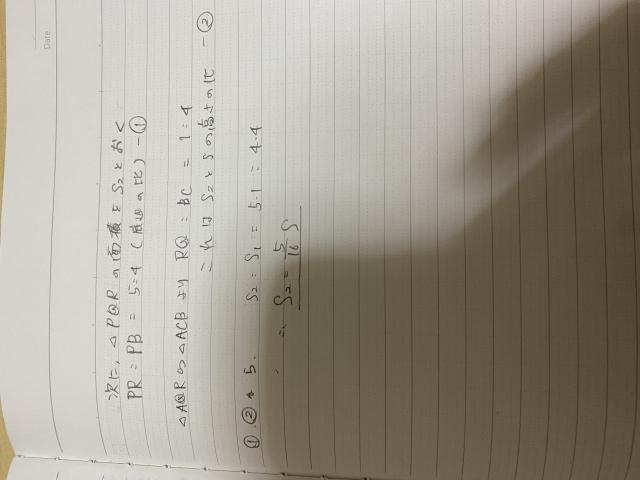 Date
次に, △PQR の面積を S₂ とおく
PR : PB = 5:4 (底辺の比) - ①
△AQR ∽ △ACB より RQ : BC = 1 : 4
これは S₂ と S の高さの比 - ②
①, ②より. S₂ : S₁ = 5・1 : 4・4
∴ S₂ = 5/16 S